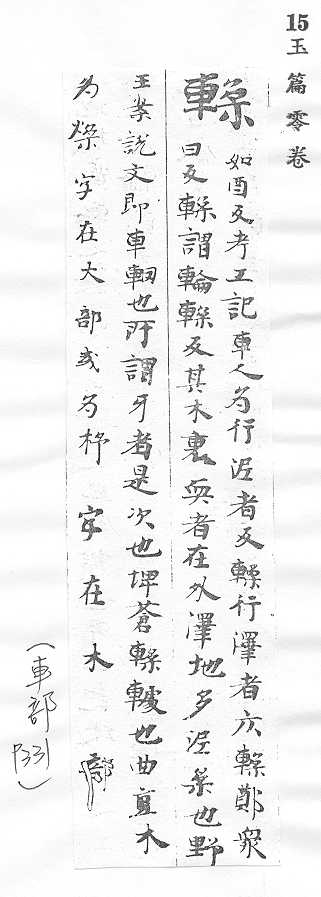 15 玉篇零卷
輮 如酉反考工記車人为行泥者反輮行澤者仄輮鄭眾
曰反輮謂輪輮反其木裏耎者在外澤地多泥柔也野
王案說文即車輞也所謂牙者是次也埤蒼輮也曲直木
为煣字在大部或为杼字在木部
(車部 P331)